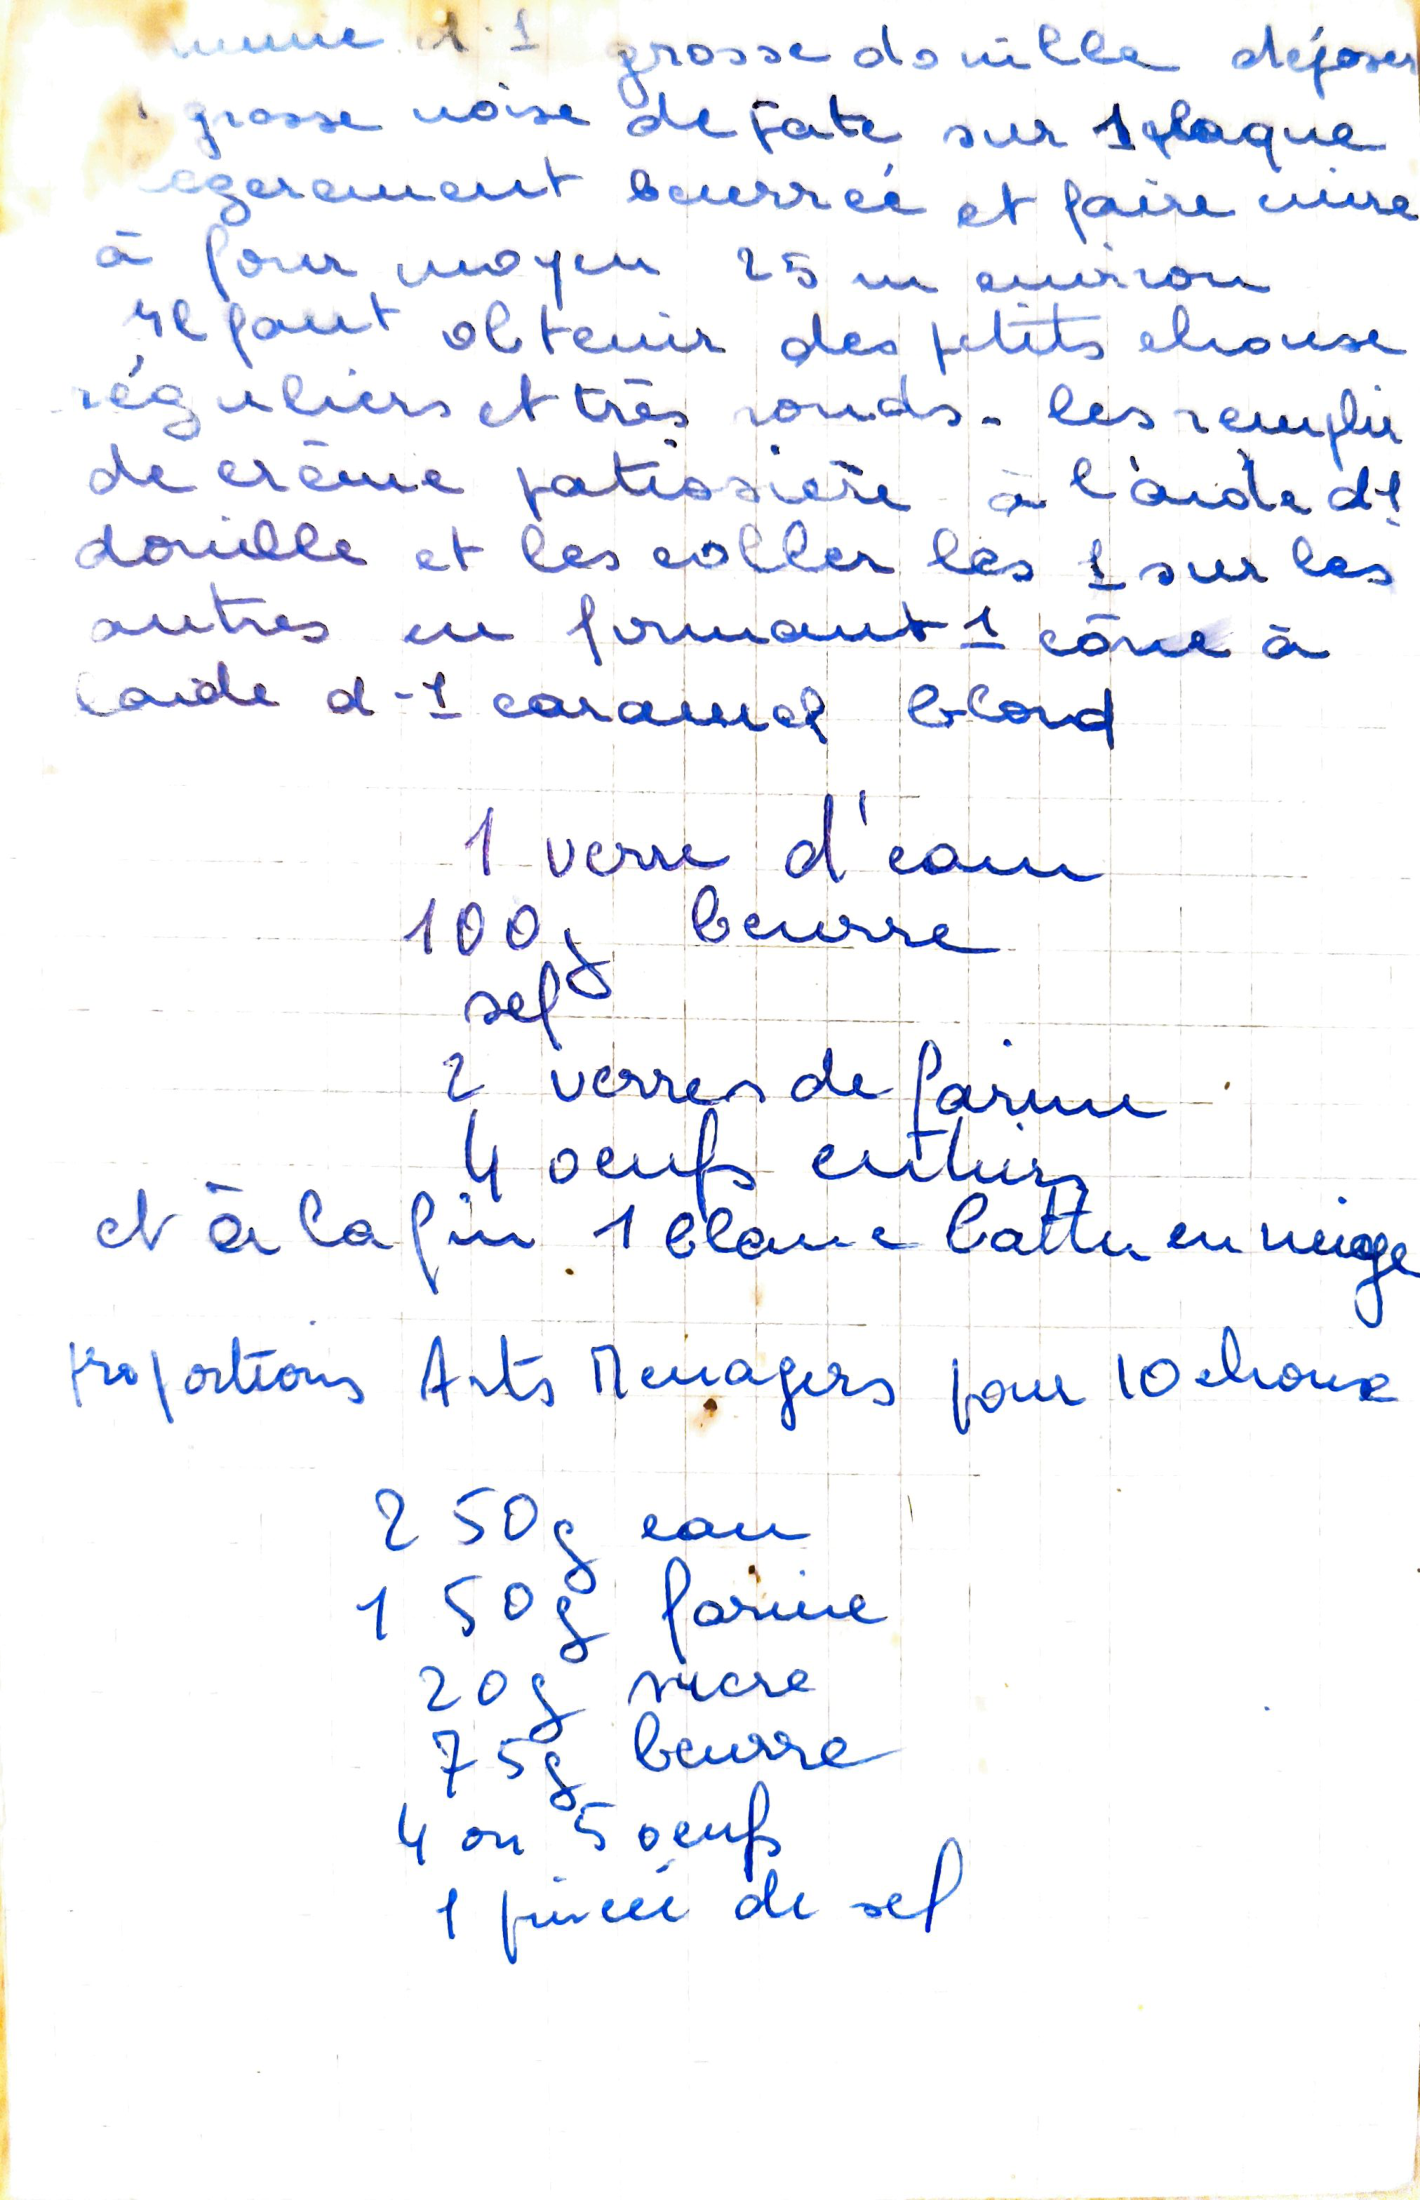 munie d'1 grosse douille déposer
grosse noise de pate sur 1 plaque
egerement beurreé et faire cuire
à four moyen 25 m environ
Il faut obtenir des petits choux
réguliers et très ronds - les remplir
de crème patissière à l'aide d'1
douille et les coller les 1 sur les
autres en formant 1 cône à
laide d-1 caramel blond
1 verre d'eau
100g beurre
sel
2 verres de farine
4 oeufs entiers
et à la fin 1 blanc battu en neige
proportions Arts Menagers pour 10 choux
250g eau
150g farine
20g sucre
75g beurre
4 ou 5 oeufs
1 pincée de sel